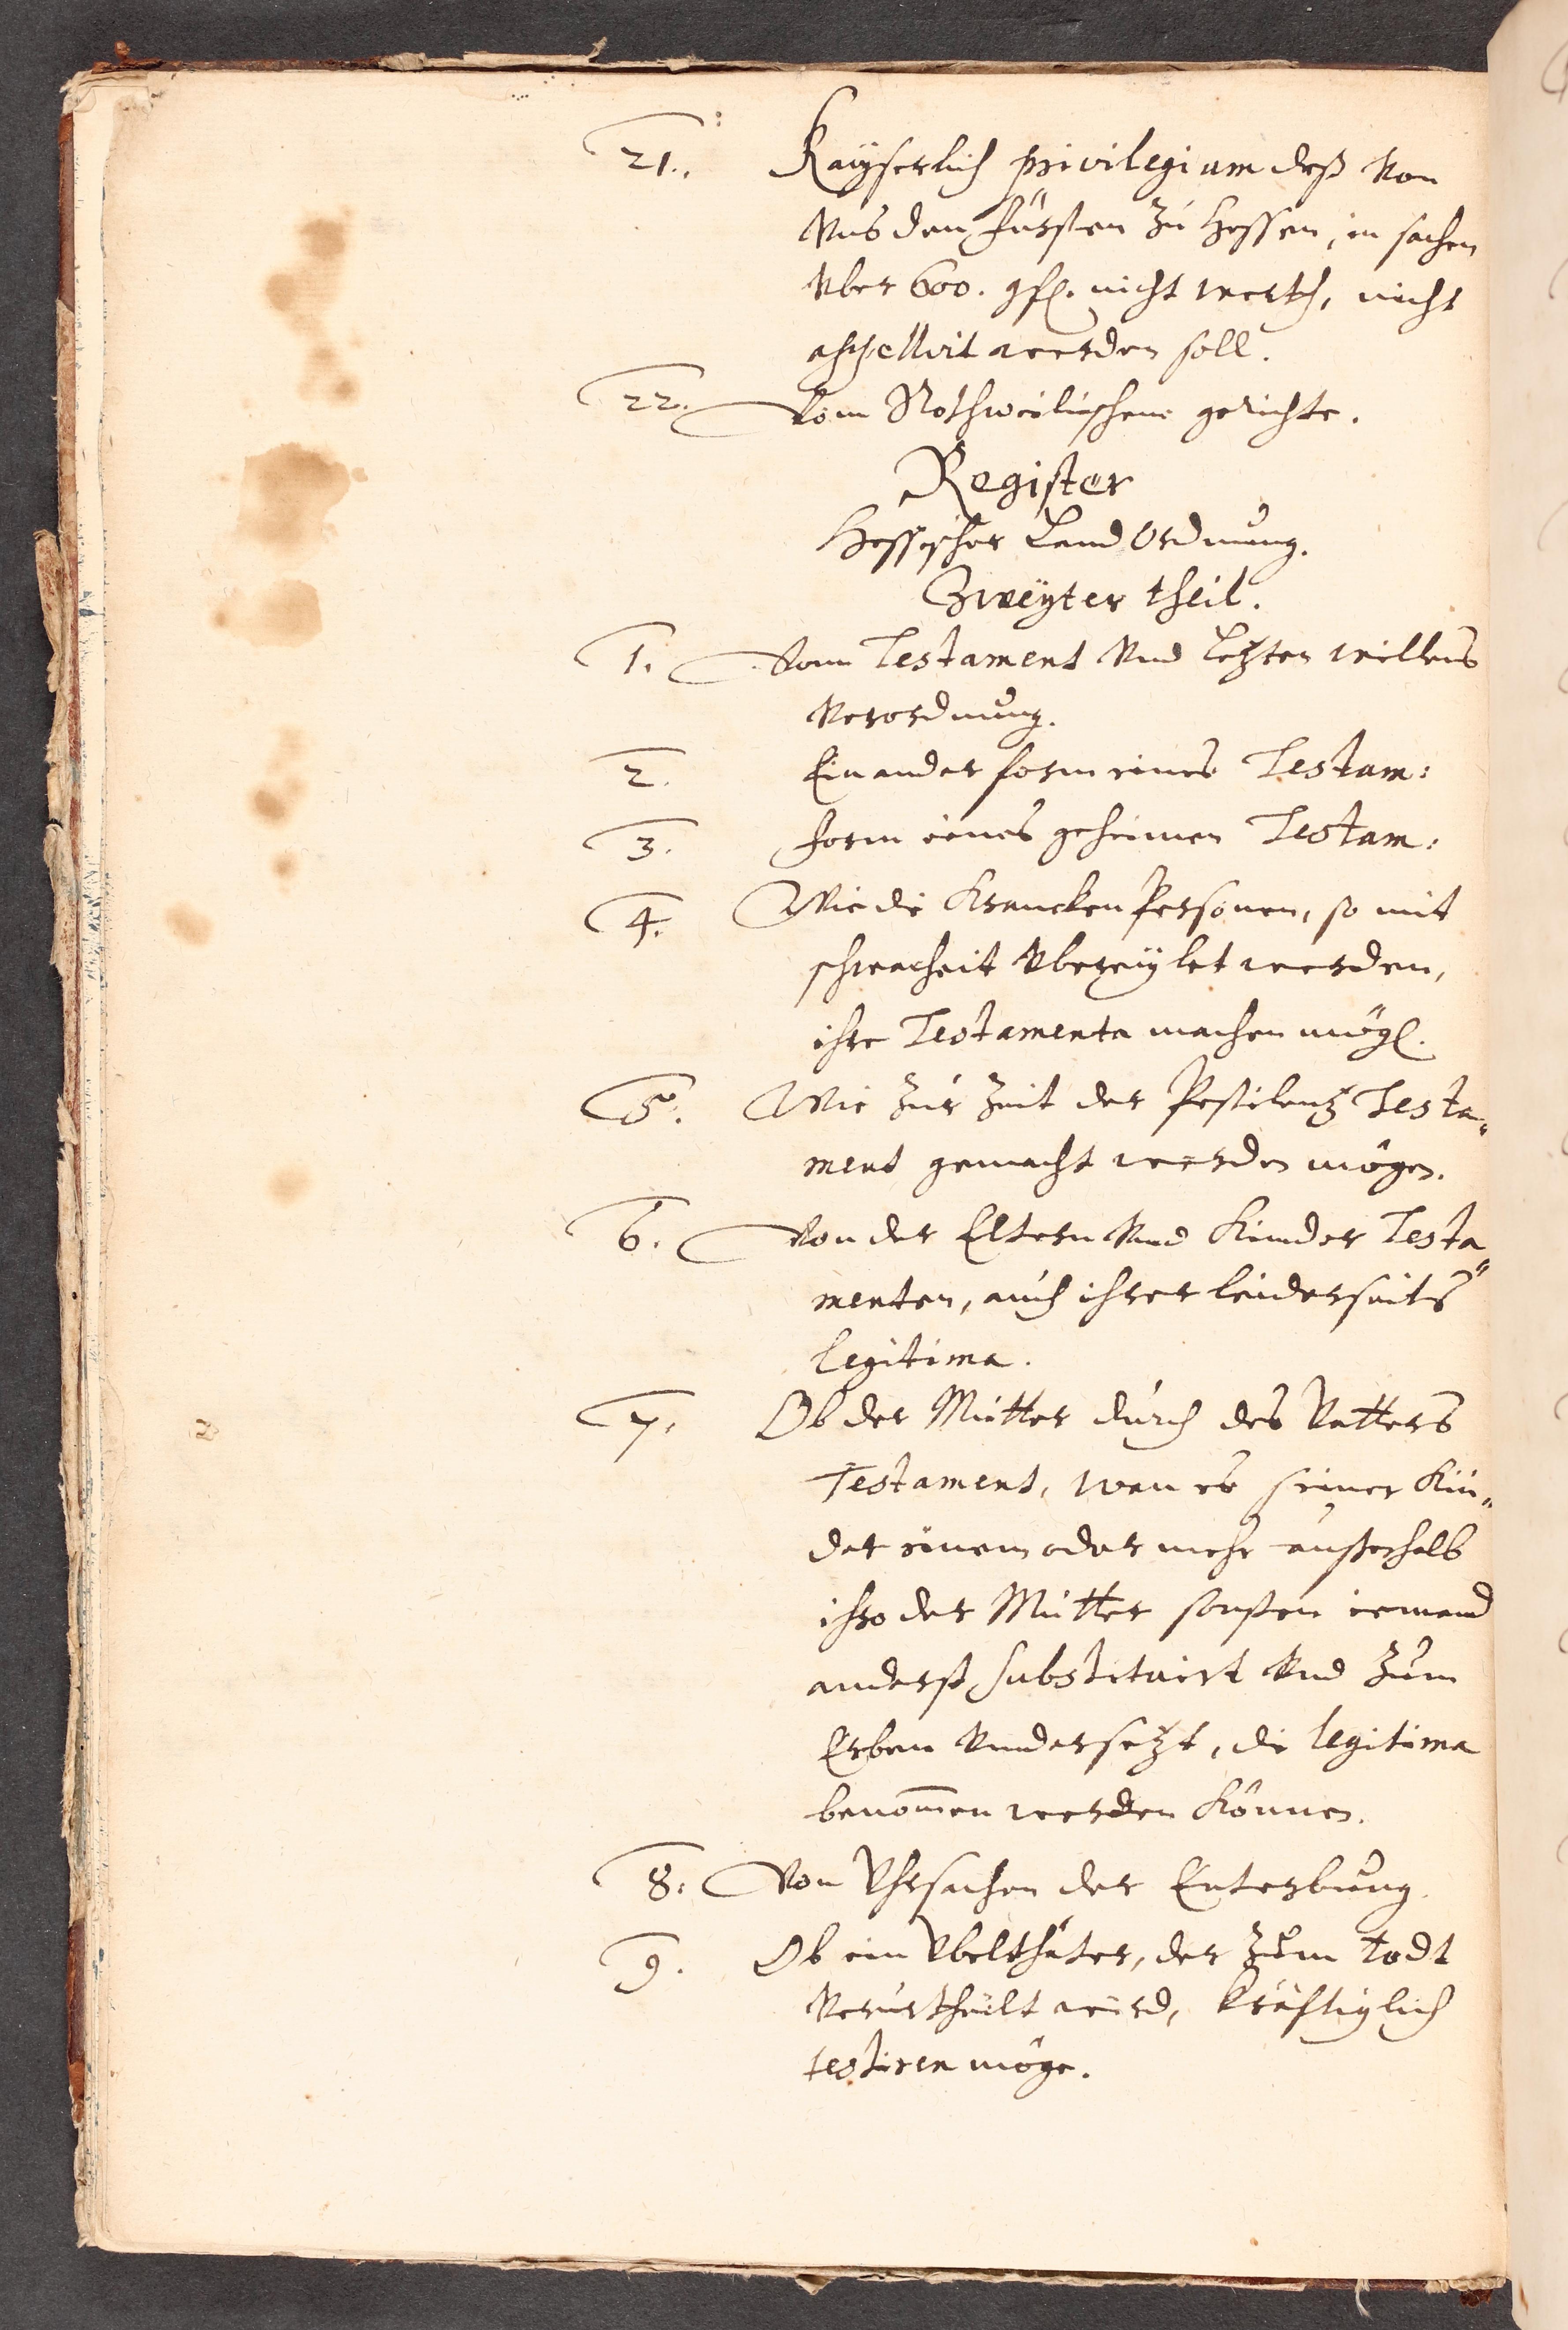 21. Kayserlich privilegium deß von
vns den Fürsten zu Hessen, in sachen
vber 600. gfl. nicht werth, nicht
appellirt werden soll.
22. Vom Rothweilischen gerichte.
Register
Hessischer Land Ordnung.
Zweyter theil.
1. Vom Testament vnd Letzten willens
verordnung.
2. Ein ander form eines Testam:
3. Form eines geheimen Testam:
4. Wie die Krancken Personen, so mit
schwacheit vbereylet werden,
ihre Testamenta machen mögl.
5. Wie zur zeit der Pestilentz Testa„
ment gemacht werden mögen.
6. Von der Eltern vnd Kinder Testa„
menten, auch ihrer beiderseits
legitima.
7. Ob der Mutter durch des Vatters
Testament, wan er seiner Kin„
der einem oder mehr außerhalb
ihro der Mutter sonsten iemand
anderß substituirt vnd zum
Erben vndersetzt, die legitima
benom̅en werden können.
8. Von Vhrsachen der Enterbung.
9. Ob ein Vbelthäter, der zum todt
verurtheilt wird, kräftiglich
testiren möge.